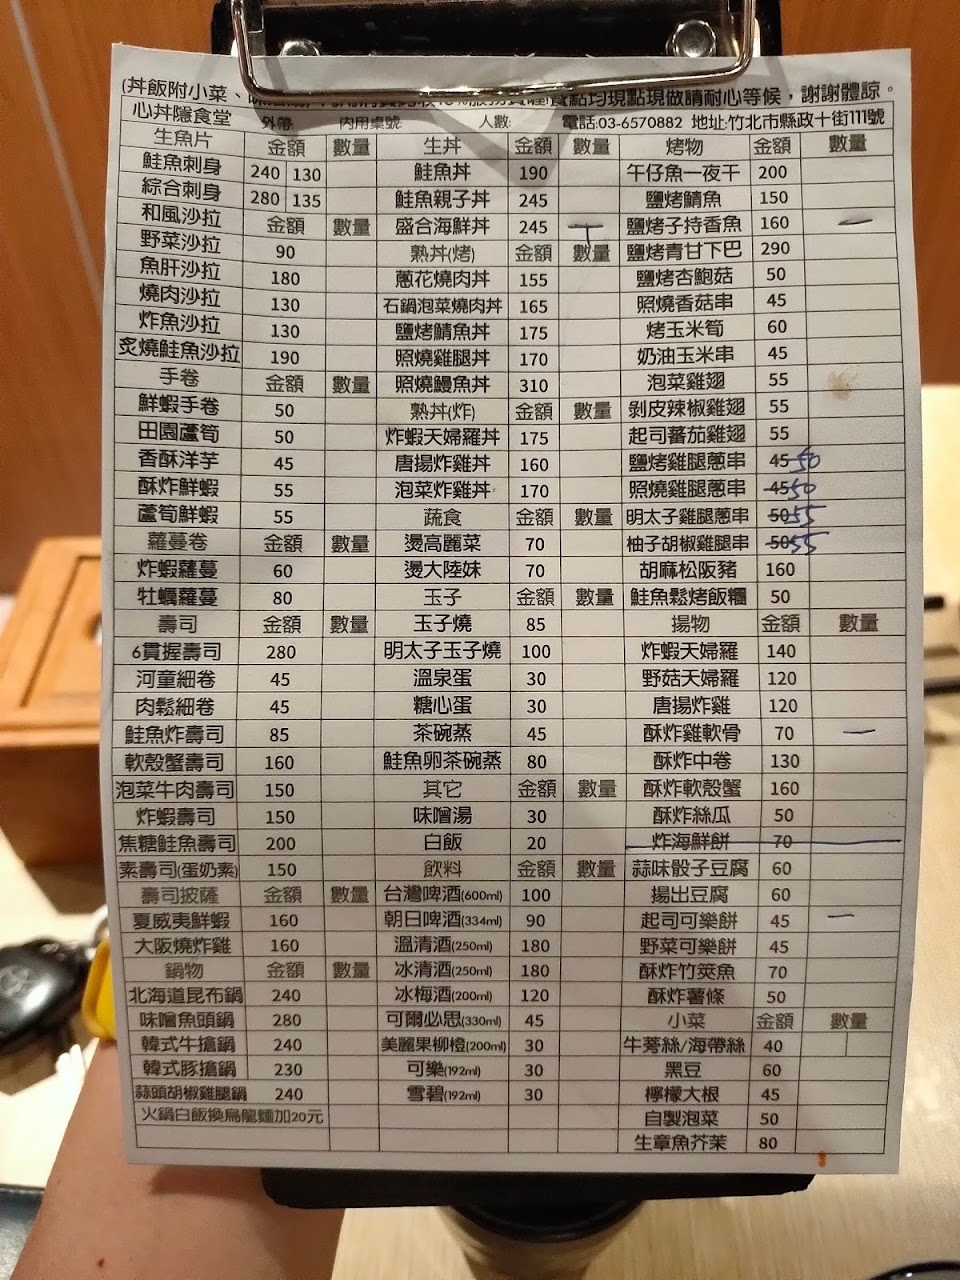 (丼飯附小菜、味噌湯) 點均現點現做請耐心等候，謝謝體諒。
心丼隱食堂 外帶: 內用桌號: 人數: 電話:03-6570882 地址:竹北市縣政十街111號
生魚片 金額 數量 生丼 金額 數量 烤物 金額 數量
鮭魚刺身 240 130 鮭魚丼 190 午仔魚一夜干 200
綜合刺身 280 135 鮭魚親子丼 245 鹽烤鯖魚 150
和風沙拉 金額 數量 盛合海鮮丼 245 鹽烤子持香魚 160 一
野菜沙拉 90 熟丼(烤) 金額 數量 鹽烤青甘下巴 290
魚肝沙拉 180 蔥花燒肉丼 155 鹽烤杏鮑菇 50
燒肉沙拉 130 石鍋泡菜燒肉丼 165 照燒香菇串 45
炸魚沙拉 130 鹽烤鯖魚丼 175 烤玉米筍 60
炙燒鮭魚沙拉 190 照燒雞腿丼 170 奶油玉米串 45
手卷 金額 數量 照燒鰻魚丼 310 泡菜雞翅 55
鮮蝦手卷 50 熟丼(炸) 金額 數量 剝皮辣椒雞翅 55
田園蘆筍 50 炸蝦天婦羅丼 175 起司蕃茄雞翅 55
香酥洋芋 45 唐揚炸雞丼 160 鹽烤雞腿蔥串 45 50
酥炸鮮蝦 55 泡菜炸雞丼 170 照燒雞腿蔥串 45 50
蘆筍鮮蝦 55 蔬食 金額 數量 明太子雞腿蔥串 50 55
蘿蔓卷 金額 數量 燙高麗菜 70 柚子胡椒雞腿串 50 55
炸蝦蘿蔓 60 燙大陸妹 70 胡麻松阪豬 160
牡蠣蘿蔓 80 玉子 金額 數量 鮭魚鬆烤飯糰 50
壽司 金額 數量 玉子燒 85 揚物 金額 數量
6貫握壽司 280 明太子玉子燒 100 炸蝦天婦羅 140
河童細卷 45 溫泉蛋 30 野菇天婦羅 120
肉鬆細卷 45 糖心蛋 30 唐揚炸雞 120
鮭魚炸壽司 85 茶碗蒸 45 酥炸雞軟骨 70 一
軟殼蟹壽司 160 鮭魚卵茶碗蒸 80 酥炸中卷 130
泡菜牛肉壽司 150 其它 金額 數量 酥炸軟殼蟹 160
炸蝦壽司 150 味噌湯 30 酥炸絲瓜 50
焦糖鮭魚壽司 200 白飯 20 炸海鮮餅 70
素壽司(蛋奶素) 150 飲料 金額 數量 蒜味骰子豆腐 60
壽司披薩 金額 數量 台灣啤酒(600ml) 100 揚出豆腐 60
夏威夷鮮蝦 160 朝日啤酒(334ml) 90 起司可樂餅 45 一
大阪燒炸雞 160 溫清酒(250ml) 180 野菜可樂餅 45
鍋物 金額 數量 冰清酒(250ml) 180 酥炸竹筴魚 70
北海道昆布鍋 240 冰梅酒(200ml) 120 酥炸薯條 50
味噌魚頭鍋 280 可爾必思(330ml) 45 小菜 金額 數量
韓式牛搶鍋 240 美麗果柳橙(200ml) 30 牛蒡絲/海帶絲 40
韓式豚搶鍋 230 可樂(192ml) 30 黑豆 60
蒜頭胡椒雞腿鍋 240 雪碧(192ml) 30 檸檬大根 45
火鍋白飯換烏龍麵加20元 自製泡菜 50
生章魚芥茉 80